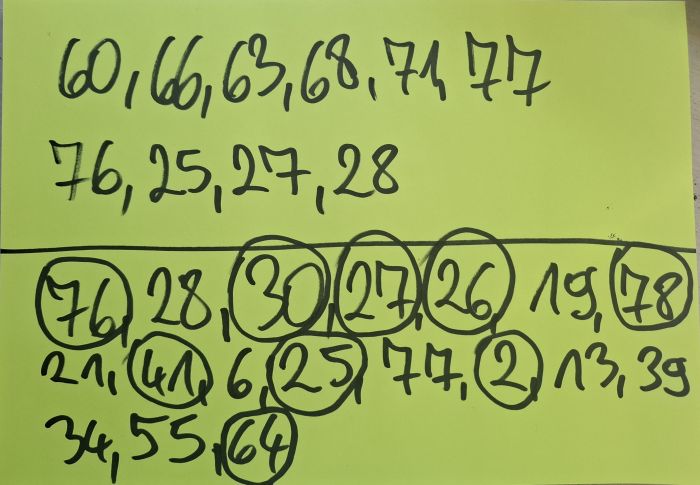 60, 66, 63, 68, 71, 77
76, 25, 27, 28
76, 28, 30, 27, 26, 19, 78
21, 41, 6, 25, 77, 2, 13, 39
34, 55, 64